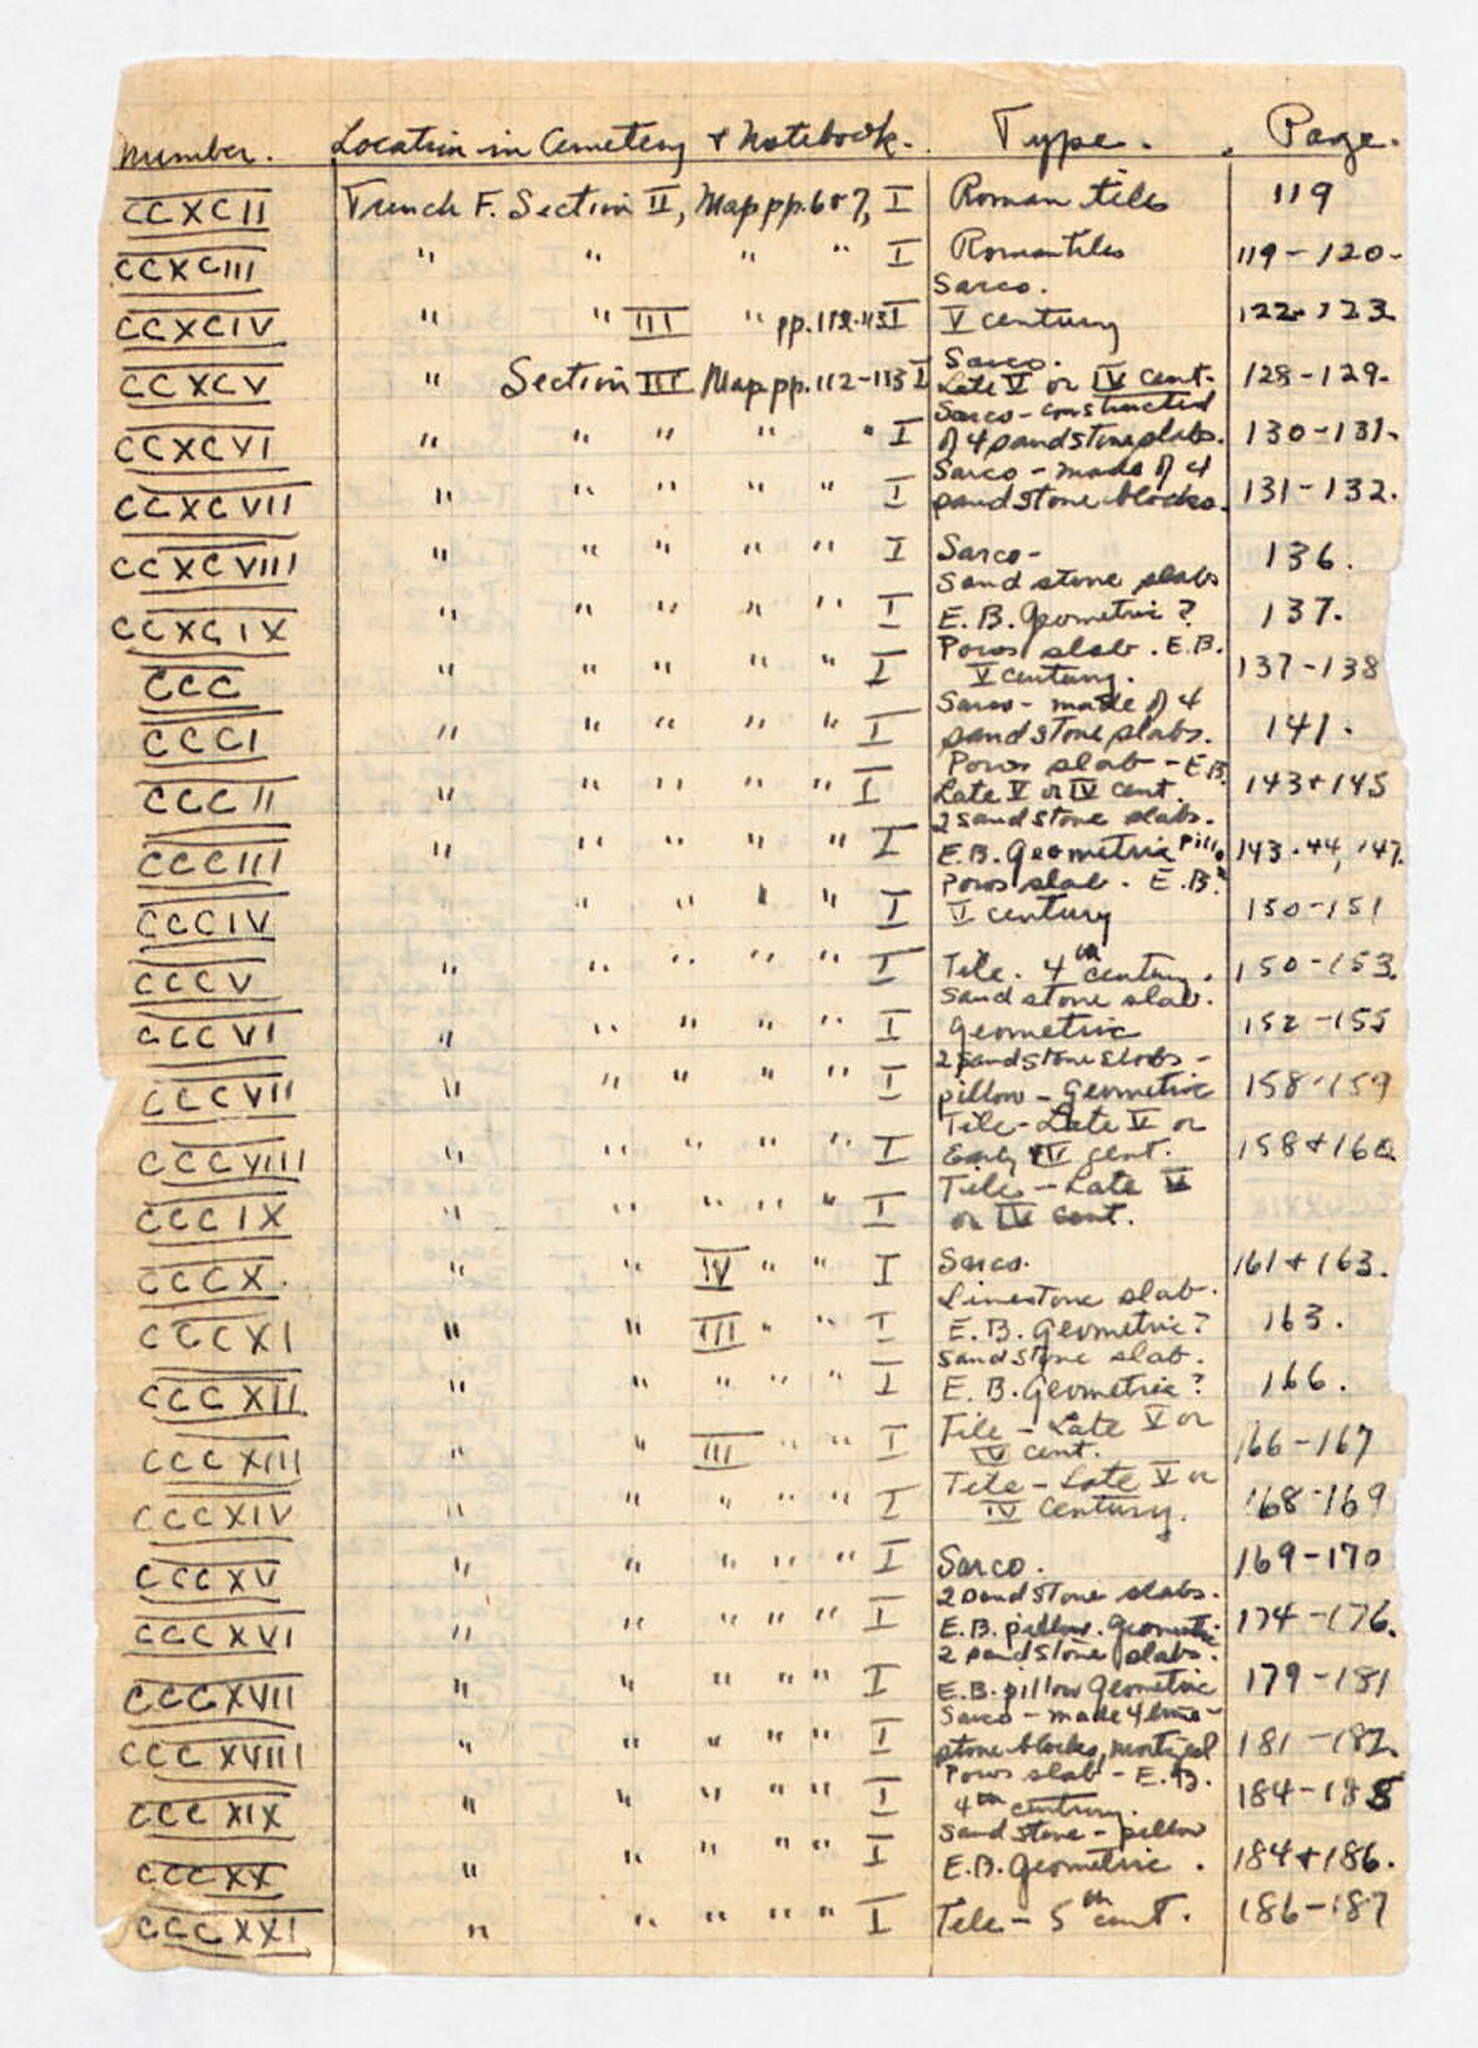 Number. Location in Cemetery + Notebook. Type. Page.
CCXCII Trench F. Section II, Map pp. 6 or 7, I Roman tiles 119
CCXCIII " " " " I Roman tiles 119-120-
CCXCIV " " III " pp. 112-113 I Sarco. V century 122-123
CCXCV " Section III Map pp. 112-113 I Sarco. Late V or IV cent. 128-129.
CCXCVI " " " " " I Sarco - constructed of 4 sandstone slabs. 130-131.
CCXCVII " " " " " I Sarco - made of 4 sandstone blocks. 131-132.
CCXCVIII " " " " " I Sarco - 136.
CCXCIX " " " " " I Sandstone slabs E.B. Geometric? 137.
CCC " " " " " I Poros slab. E.B. V century. 137-138
CCCI " " " " " I Sarco - made of 4 sandstone slabs. 141.
CCCII " " " " " I Poros slab - E.B. Late V or IV cent. 143+145
CCCIII " " " " " I 2 sandstone slabs. E.B. Geometric 143-44, 147.
CCCIV " " " " I Poros slab. E.B. V century 150-151
CCCV " " " " " I Tile. 4th century. 150-153.
CCCVI " " " " " I Sandstone slab. Geometric 152-155
CCCVII " " " " " I 2 sandstone slabs - pillow - Geometric 158-159
CCCVIII " " " " " I Tile - Late V or Early IV cent. 158+160.
CCCIX " " " " " I Tiles - Late V or IV cent.
CCCX. " " IV " " I Sarco. 161+163.
CCCXI " " III " " I Limestone slab. E.B. Geometric? 163.
CCCXII " " " " " I Sandstone slab. E.B. Geometric? 166.
CCCXIII " " III " " I Tile - Late V or IV cent. 166-167
CCCXIV " " " " " I Tile - Late V or IV century. 168-169
CCCXV " " " " " I Sarco. 169-170
CCCXVI " " " " " I 2 sandstone slabs. E.B. pillow. Geometric 174-176.
CCCXVII " " " " " I 2 sandstone slabs. E.B. pillow Geometric 179-181
CCCXVIII " " " " " I Sarco - made 4 lime-stone blocks, mortised 181-182.
CCCXIX " " " " " I Poros slab - E.B. 4th century. 184-185
CCCXX " " " " " I Sandstone - pillow E.B. Geometric. 184+186.
CCCXXI " " " " " I Tile - 5th cent. 186-187